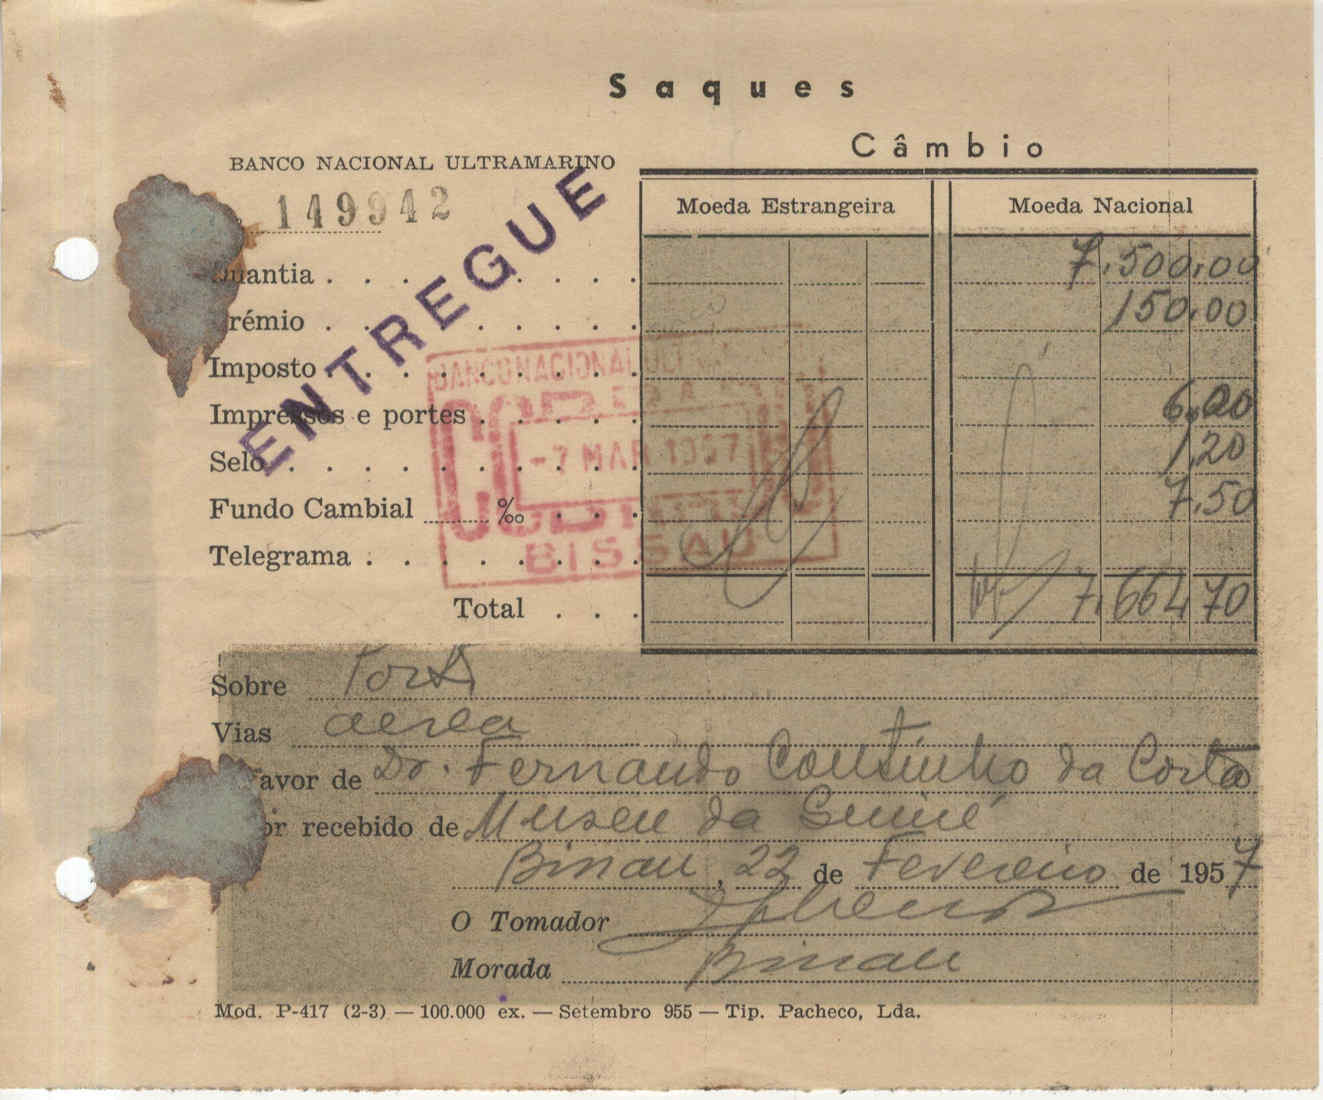 Saques
Câmbio
BANCO NACIONAL ULTRAMARINO
149942
ENTREGUE
Moeda Estrangeira Moeda Nacional
Quantia . . . . . . . . . 7.500,00
Prémio . . . . . . . . . 150,00
Imposto . . . . . . . . .
Impressos e portes . . . . . 6,00
Selo . . . . . . . . . . 1,20
Fundo Cambial ‰ . . . 7,50
Telegrama . . . . . . . .
Total . . . 7.664,70
BANCO NACIONAL
-7 MAR 1957
BISSAU
Sobre Porto
Vias aerea
favor de Dr. Fernando Coutinho da Costa
or recebido de Museu da Guiné
Bissau, 22 de Fevereiro de 1957
O Tomador
Morada Bissau
Mod. P-417 (2-3) — 100.000 ex. — Setembro 955 — Tip. Pacheco, Lda.